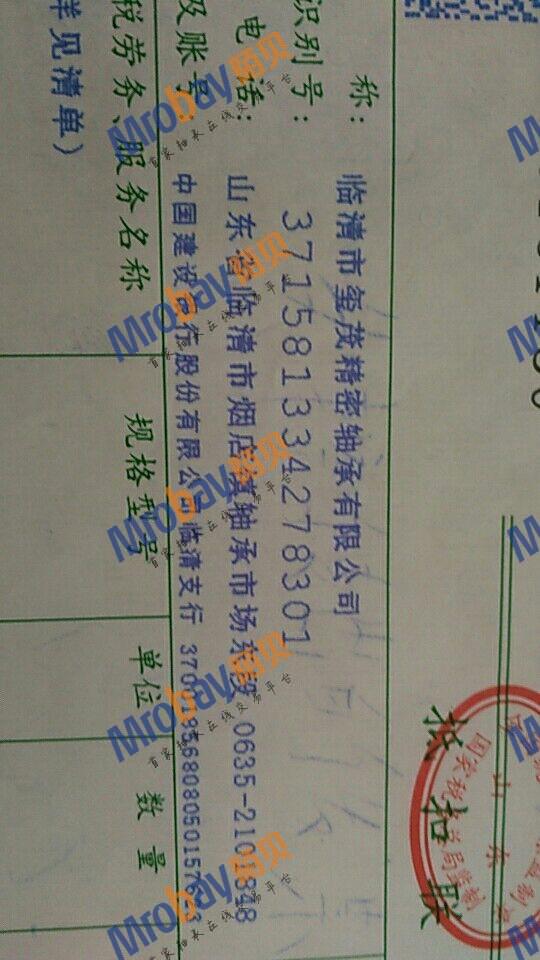 抵扣联
称: 临清市玺茂精密轴承有限公司
识别号: 371581334278301
电话: 山东省临清市烟店镇轴承市场东段 0635-2101848
及账号: 中国建设银行股份有限公司临清支行
税劳务、服务名称 规格型号 单位 数量
详见清单)
Mrobay陌贝
首家轴承在线交易平台